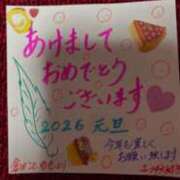 あけまして
おめでとう
ございます
2026 元旦
今年も宜しく
お願い致します